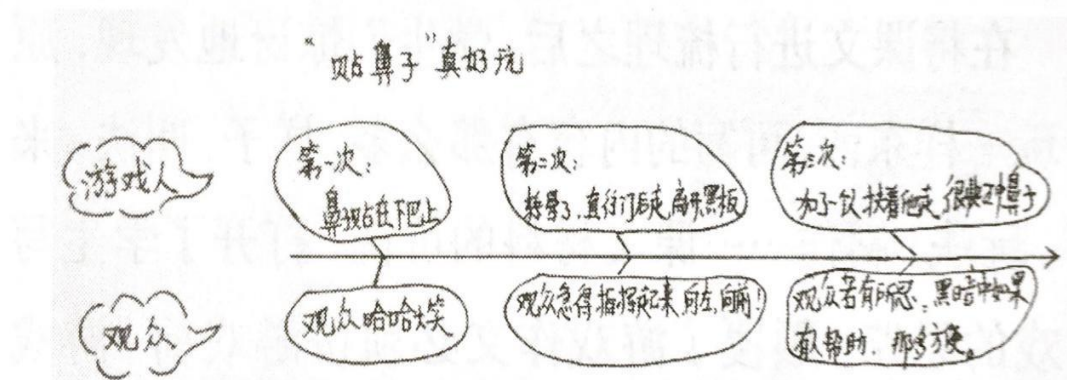 “贴鼻子”真好玩
游戏人
第一次：
鼻子贴在下巴上
第二次：
转晕了，直往门后走，离开黑板
第三次：
为了一个人扶着他走，很快贴中鼻子
观众
观众哈哈大笑
观众急得指挥起来，向左，向前！
观众若有所思：黑暗中如果
有人帮助，那多方便。